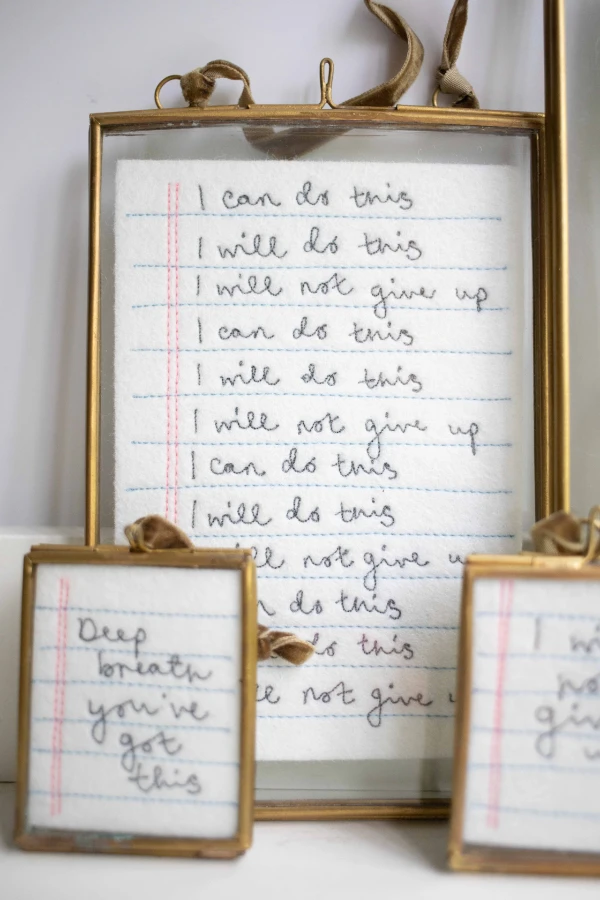 I can do this
I will do this
I will not give up
I can do this
I will do this
I will not give up
I can do this
I will do this
not give
do this
this
not give
Deep
breath
you've
got
this
I